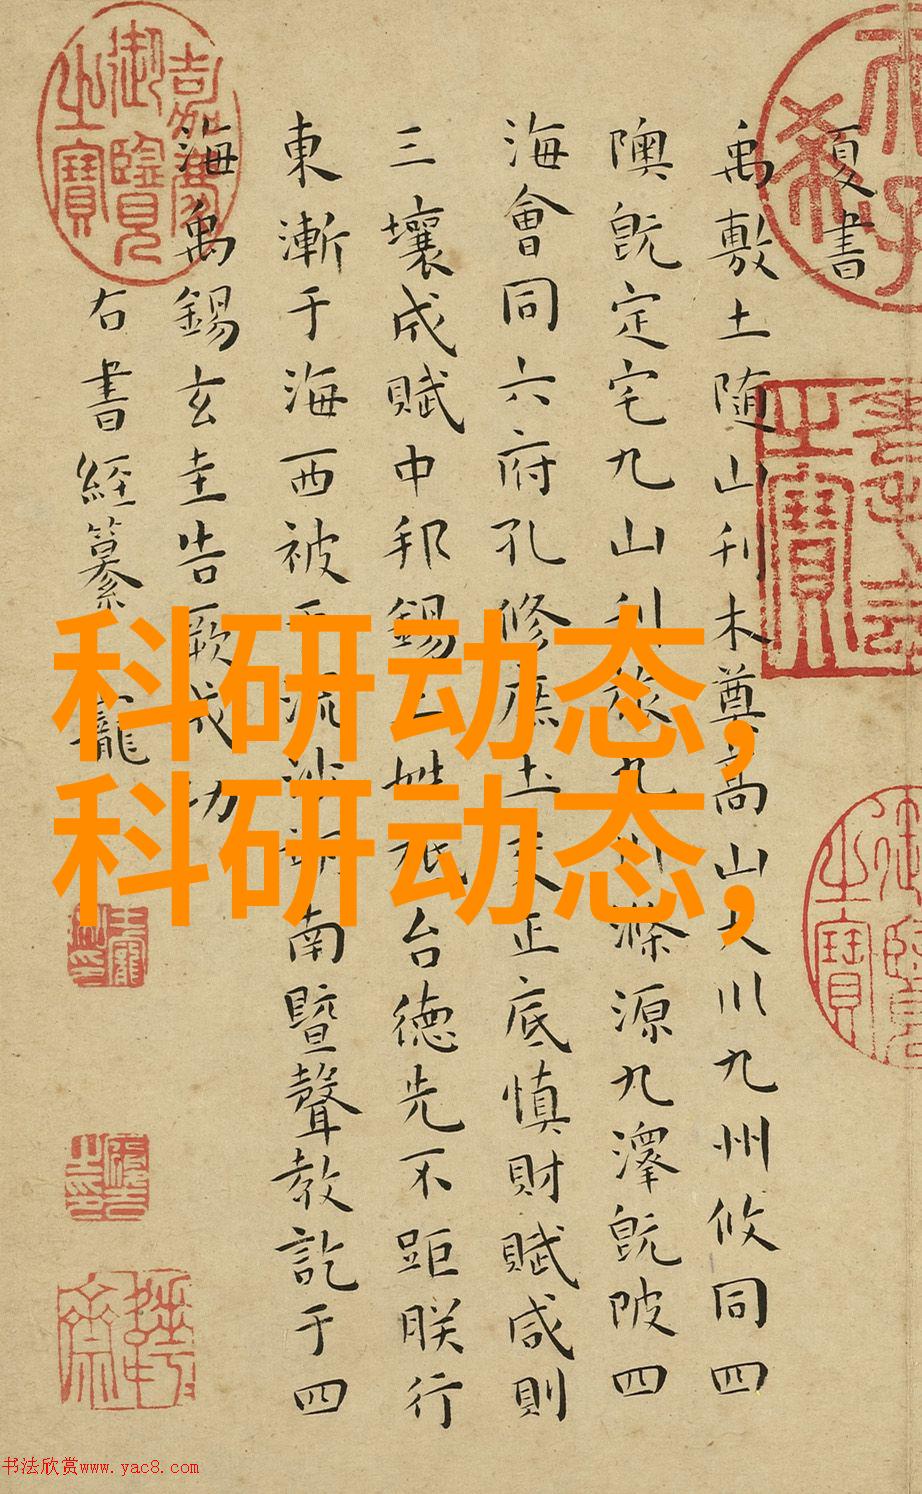 夏書
禹敷土随山刊木尊高山大川九州攸同四
隩既定宅九山刊旅九川滌源九澤既陂四
海會同六府孔修庶土交正底慎財賦咸則
三壤成賦中邦錫土姓祗台德先不距朕行
東漸于海西被于流沙朔南暨聲教訖于四
海禹錫玄圭告厥成功
右書經纂 寵
嘉慶御覽之寶
科研动态,
科研动态,
书法欣赏www.yac8.com